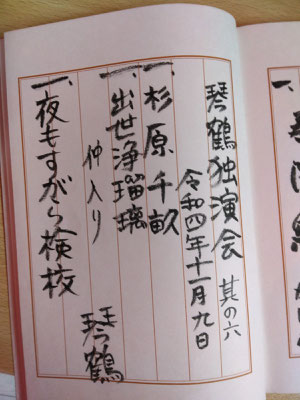 琴鶴独演会 其の六
令和四年十一月九日
一、杉原千畝
一、出世浄瑠璃
仲入り
一、夜もすがら検校
琴鶴